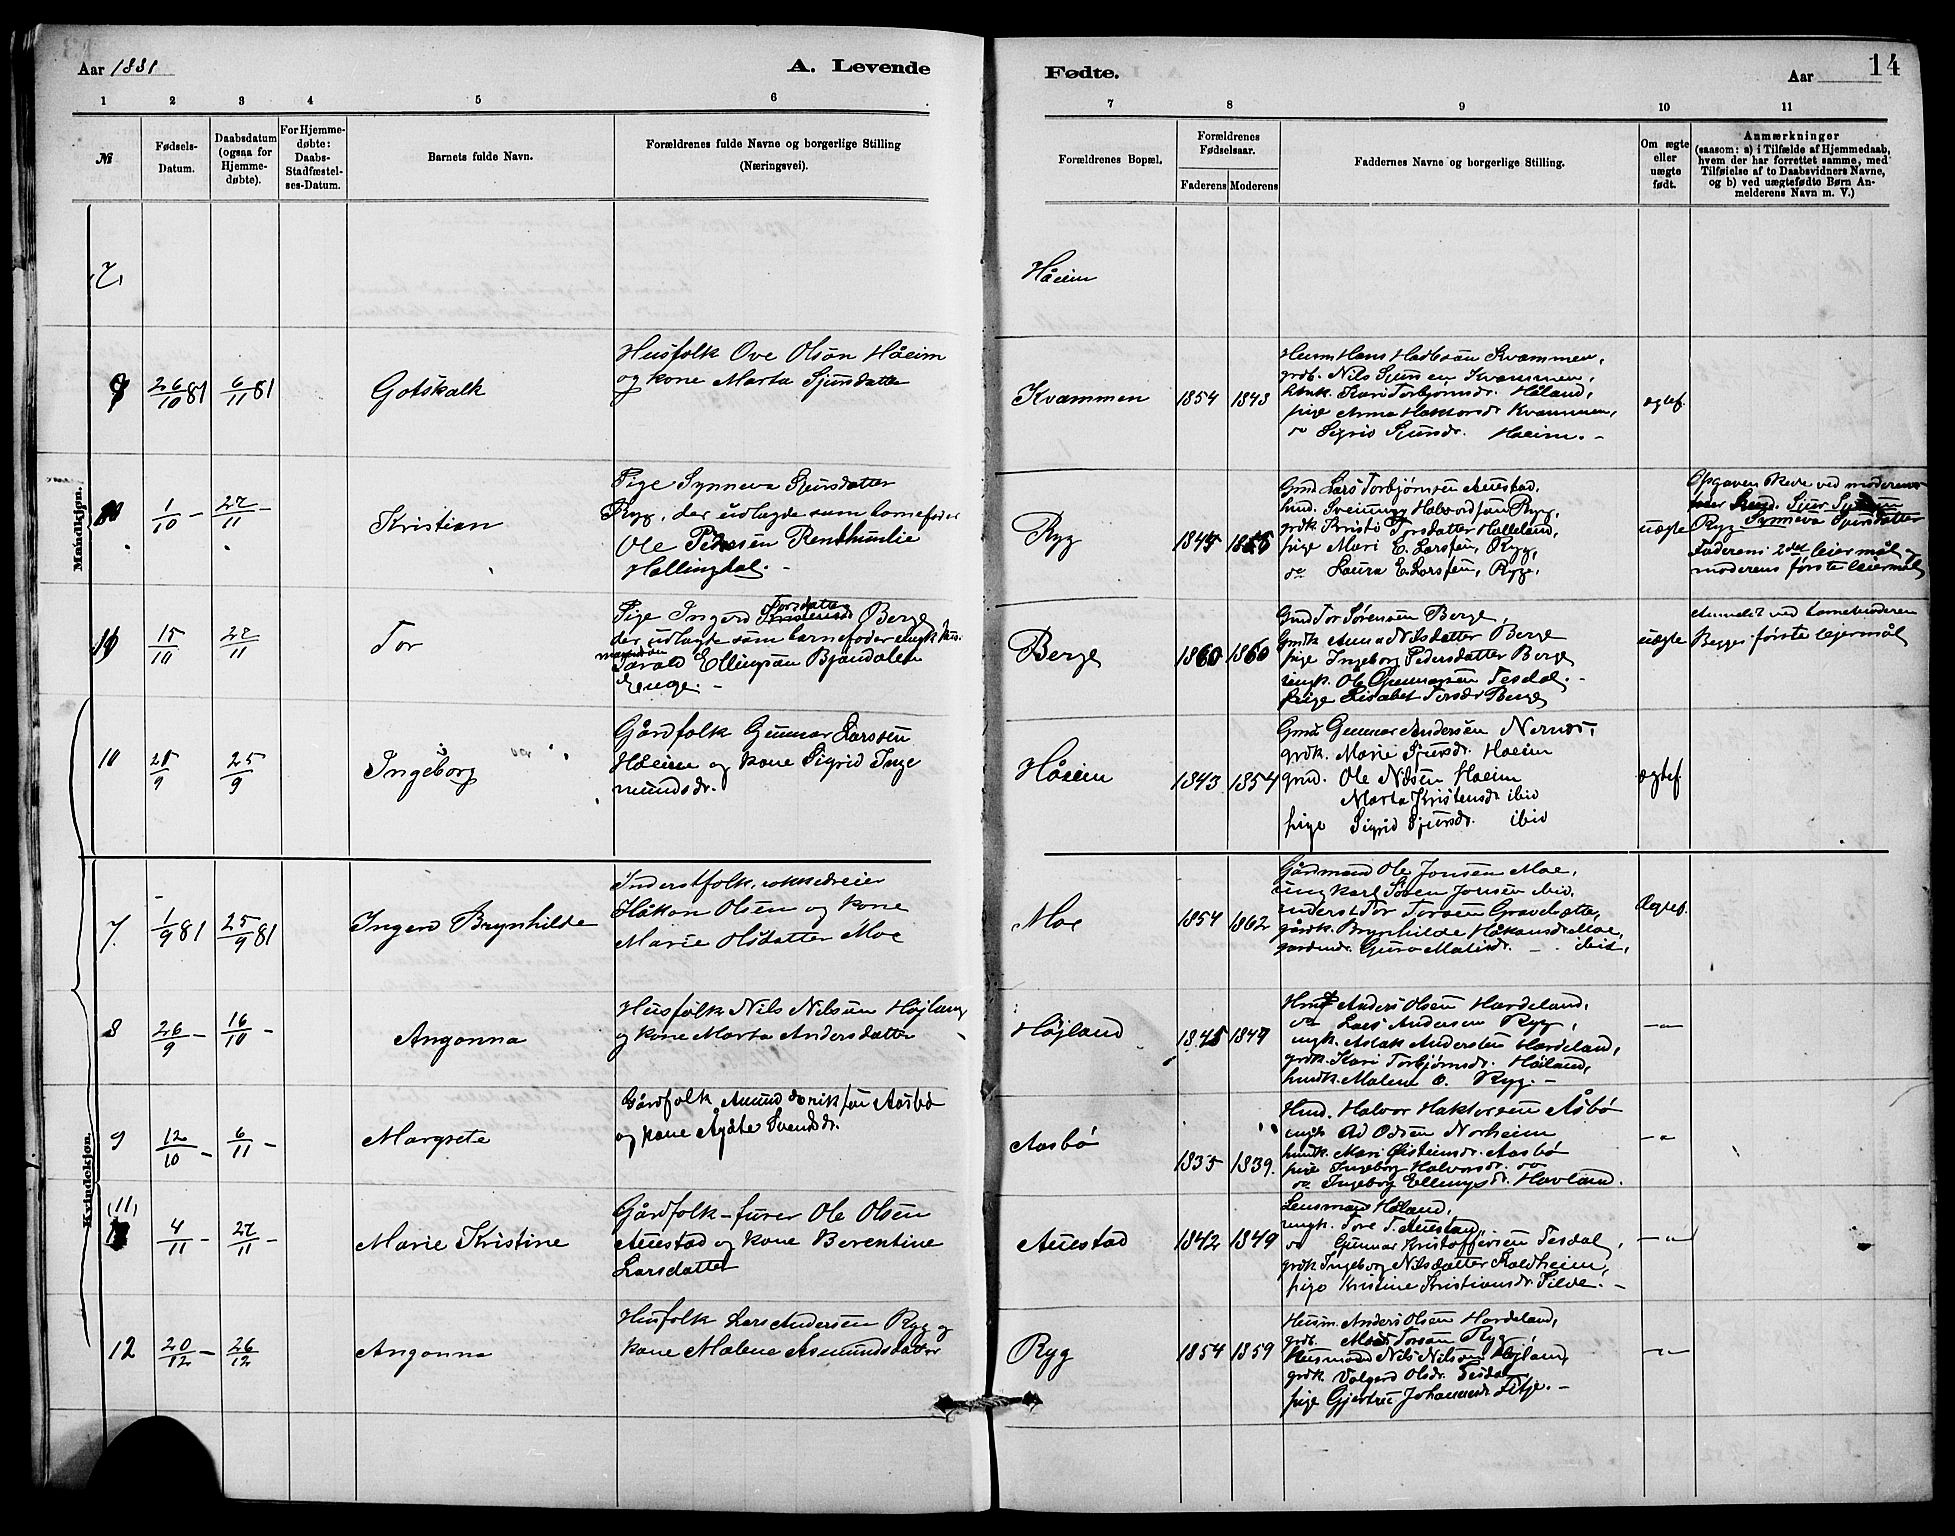 Aar 1881
A. Levende
Fødte.
Aar
14
1 2 3 4 5 6
7 8 9 10 11
№
Fødsels-
Datum.
Daabsdatum
(ogsaa for
Hjemme-
døbte).
For Hjemme-
døbte:
Daabs-
Stadfæstel-
ses-Datum.
Barnets fulde Navn.
Forældrenes fulde Navne og borgerlige Stilling
(Næringsvei).
Forældrenes Bopæl.
Forældrenes
Fødselsaar.
Faderens Moderens
Faddernes Navne og borgerlige Stilling.
Om ægte
eller
uægte
født.
Anmærkninger
(saasom: a) i Tilfælde af Hjemmedaab,
hvem der har forrettet samme, med
Tilføielse af to Daabsvidners Navne,
og b) ved uægtefødte Børn An-
melderens Navn m. V.)
Mandkjøn.
7,
Håeim
26/10 81 6/11 81
Gotskalk
Husfolk Ove Olson Håeim
og kone Marta Sjursdatter
Kvammen
1854 1843
Husm Hans Kvammen,
grdb. Nils Sjursen Kvammen,
Kari Torbjørnsdr. Håland,
pige Anna Haktorsdr Kvammen,
do Sigrid Sjursdr. Haeim. -
ægtef.
1/10 - 27/11 -
Kristian
Pige Synneva Sjursdatter
Ryg, der udlagde som barnefader
Ole Pedersen Renthunlie
Hallingdal. -
Ryg
1845 1855
Gmd Lars Torbjørnsen Auestad.
hmd. Sveinung Halvordson Ryg,
grdk Kristi Torsdatter Halleland,
pige Mari E. Larssen, Ryg,
do Laura E. Larssen, Ryg,
uægte
Opgaven skede ved moderens
Sjur
Ryg Synneva Sjursdatter
Faderens 2det leiermål
moderens første leiermål
15/10 27/11
Tor
Pige Ingerd Torsdatter Berge
der udlagde som barnefader ungk hus-
mandsøn
Tarald Ellingsøn Bjåndalen
Enge. -
Berge
1860 1860
Gmd Tor Sørensøn Berge,
Gmdk Anna Nilsdatter Berge
pige Ingeborg Pedersdatter Berge
ungk. Ole Gunnarsen Tesdal. -
pige Lisabet Torsdr Berge
uægte
Anmeldt ved barnemoderen
Begges første leiermål
10
25/9
Ingeborg
Gårdfolk Gunnar Larssen
Håeim og kone Sigrid Inge
mundsdr.
Håeim
1843 1854
Gmd Gunnar Andersén Nernes,
grdk. Marie Sjursdr. Haeim
gmd. Ole Nilsen Haeim
Marta Kristensdr ibid
pige Sigrid Sjursdr. ibid
ægtef.
Kvindekjøn.
7.
1/9 81 25/9 81
Ingerd Brynhilde
Inderstfolk,
Håkon Olsen og kone
Marie Olsdatter Moe
Moe
1854 1862
Gårdmand Ole Jonsen Moe,
ungkarl Søren Jonsen ibid,
inderst Tor Torsen Gravdsætte,
gårdk. Brynhilde Håkonsdr Moe,
Guro Matisdr. - ibid,
Ægtef.
8
26/9 - 16/10 -
Anganna
Husfolk Nils Nilsen Højland
og kone Marta Andersdatter
Højland
1845 1847
Hmd Anders Olsen Hardeland,
do Lars Andersen Ryg,
ungk. Aslak Andersen Hardeland,
grdk. Kari Torbjørnsdr. Håland,
husdk. Malene O. Ryg. -
-"-
9
12/10 - 6/11 -
Margrete
Gårdfolk Amund
og kone Svendsdr.
Aasbø
1835 1839.
Hmd. Halvor Haktorsen Åsbø
ungk Ad Odsen Norheim
husdk. Mari Øisteinsdr. Aasbø
pige Ingeborg Halvorsdr. do
do Ingeborg Ellingsdr. Havland.
-"-
(11,
4/11 - 27/11 -
Marie Kristine
Gårdfolk - furer Ole Olsen
Auestad og kone Berentine
Larsdatter
Auestad
1842 1849
Lensmand Håland,
ungk. Tore T. Auestad,
do Gunnar Kristoffersen Tesdal,
grdk Ingeborg Nilsdatter Kaldheim,
pige Kristine Kristiansdr. Silde. -
-"-
12
20/12 - 26/12
Anganna
Husfolk Lars Andersen Ryg og
kone Malene Asmundsdatter
Ryg
1854 1859
Husm. Anders Olsen Hardeland,
grdb. Mads Torsøn Ryg
Husmand Nils Nilsen Højland,
grdk. Valgerd Olsdr. Tesdal
pige Gjertru Johannesdr Titje. -
-"-